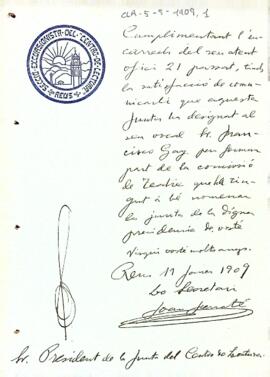 CLA-5-5-1909,1
SECCIÓ EXCURSIONISTA DEL CENTRE DE LECTURA
REUS
Complimentant l'en
carrech del seu atent
ofici 21 passat, tinch
la satisfacció de comu
nicarli que aquesta
Junta ha designat al
seu vocal Sr. Fran
cisco Gay per formar
part de la comissió
de Teatre que ha tin
gut a bé nomenar
la junta de la digna
presidencia de vosté
Visqui vosté molts anys.
Reus 11 Janer 1909
Lo Secretari
Joan
Sr. President de la Junta del Centre de Lectura.